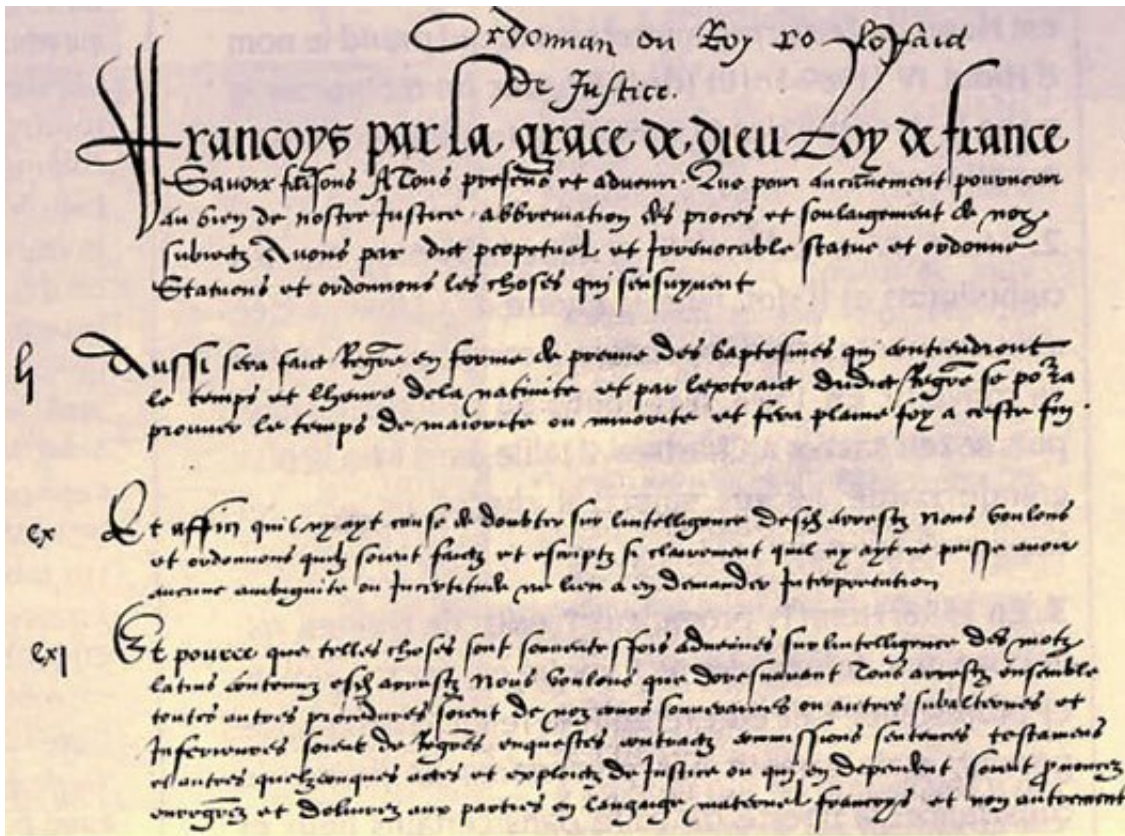 Ordonnan du Roy
De Justice.
Francoys par la grace de dieu Roy de france
Savoir faisons A Tous presens et advenir. Que pour aucunement pourveoir
au bien de nostre Justice, abbreviation des proces et soulaigement de noz
subiectz Avons par dict perpetuel et Irrevocable statue et ordonne
Statuons et ordonnons les choses qui sensuyvent
Aussi sera faict Regre en forme de preuve des baptesmes qui contiendront
le temps et lheure de la nativite et par lextraict dudict Regre se pora
prouver le temps de maiorite ou minorite et fera plaine foy a ceste fin.
cx Et affin quil ny ayt cause de doubter sur lintelligence desd arrestz Nous voulons
et ordonnons quilz soient faictz et escriptz si clairement quil ny ayt ne puisse avoir
aucune ambiguite ou Incertitude ne lieu a en demander Interpretation
cxi Et pource que telles choses sont souventesfois advenues sur lintelligence des motz
latins contenuz esd arrestz Nous voulons que doresnavant Tous arrestz ensemble
toutes autres procedures soient de noz cours souveraines ou autres subalternes et
Inferieures soient de Regres enquestes contractz commissions sentences testamens
et autres quelzconques actes et exploictz de Justice ou qui en dependent soient pnoncez
enregrez et delivrez aux parties en langaige maternel francoys et non autrement